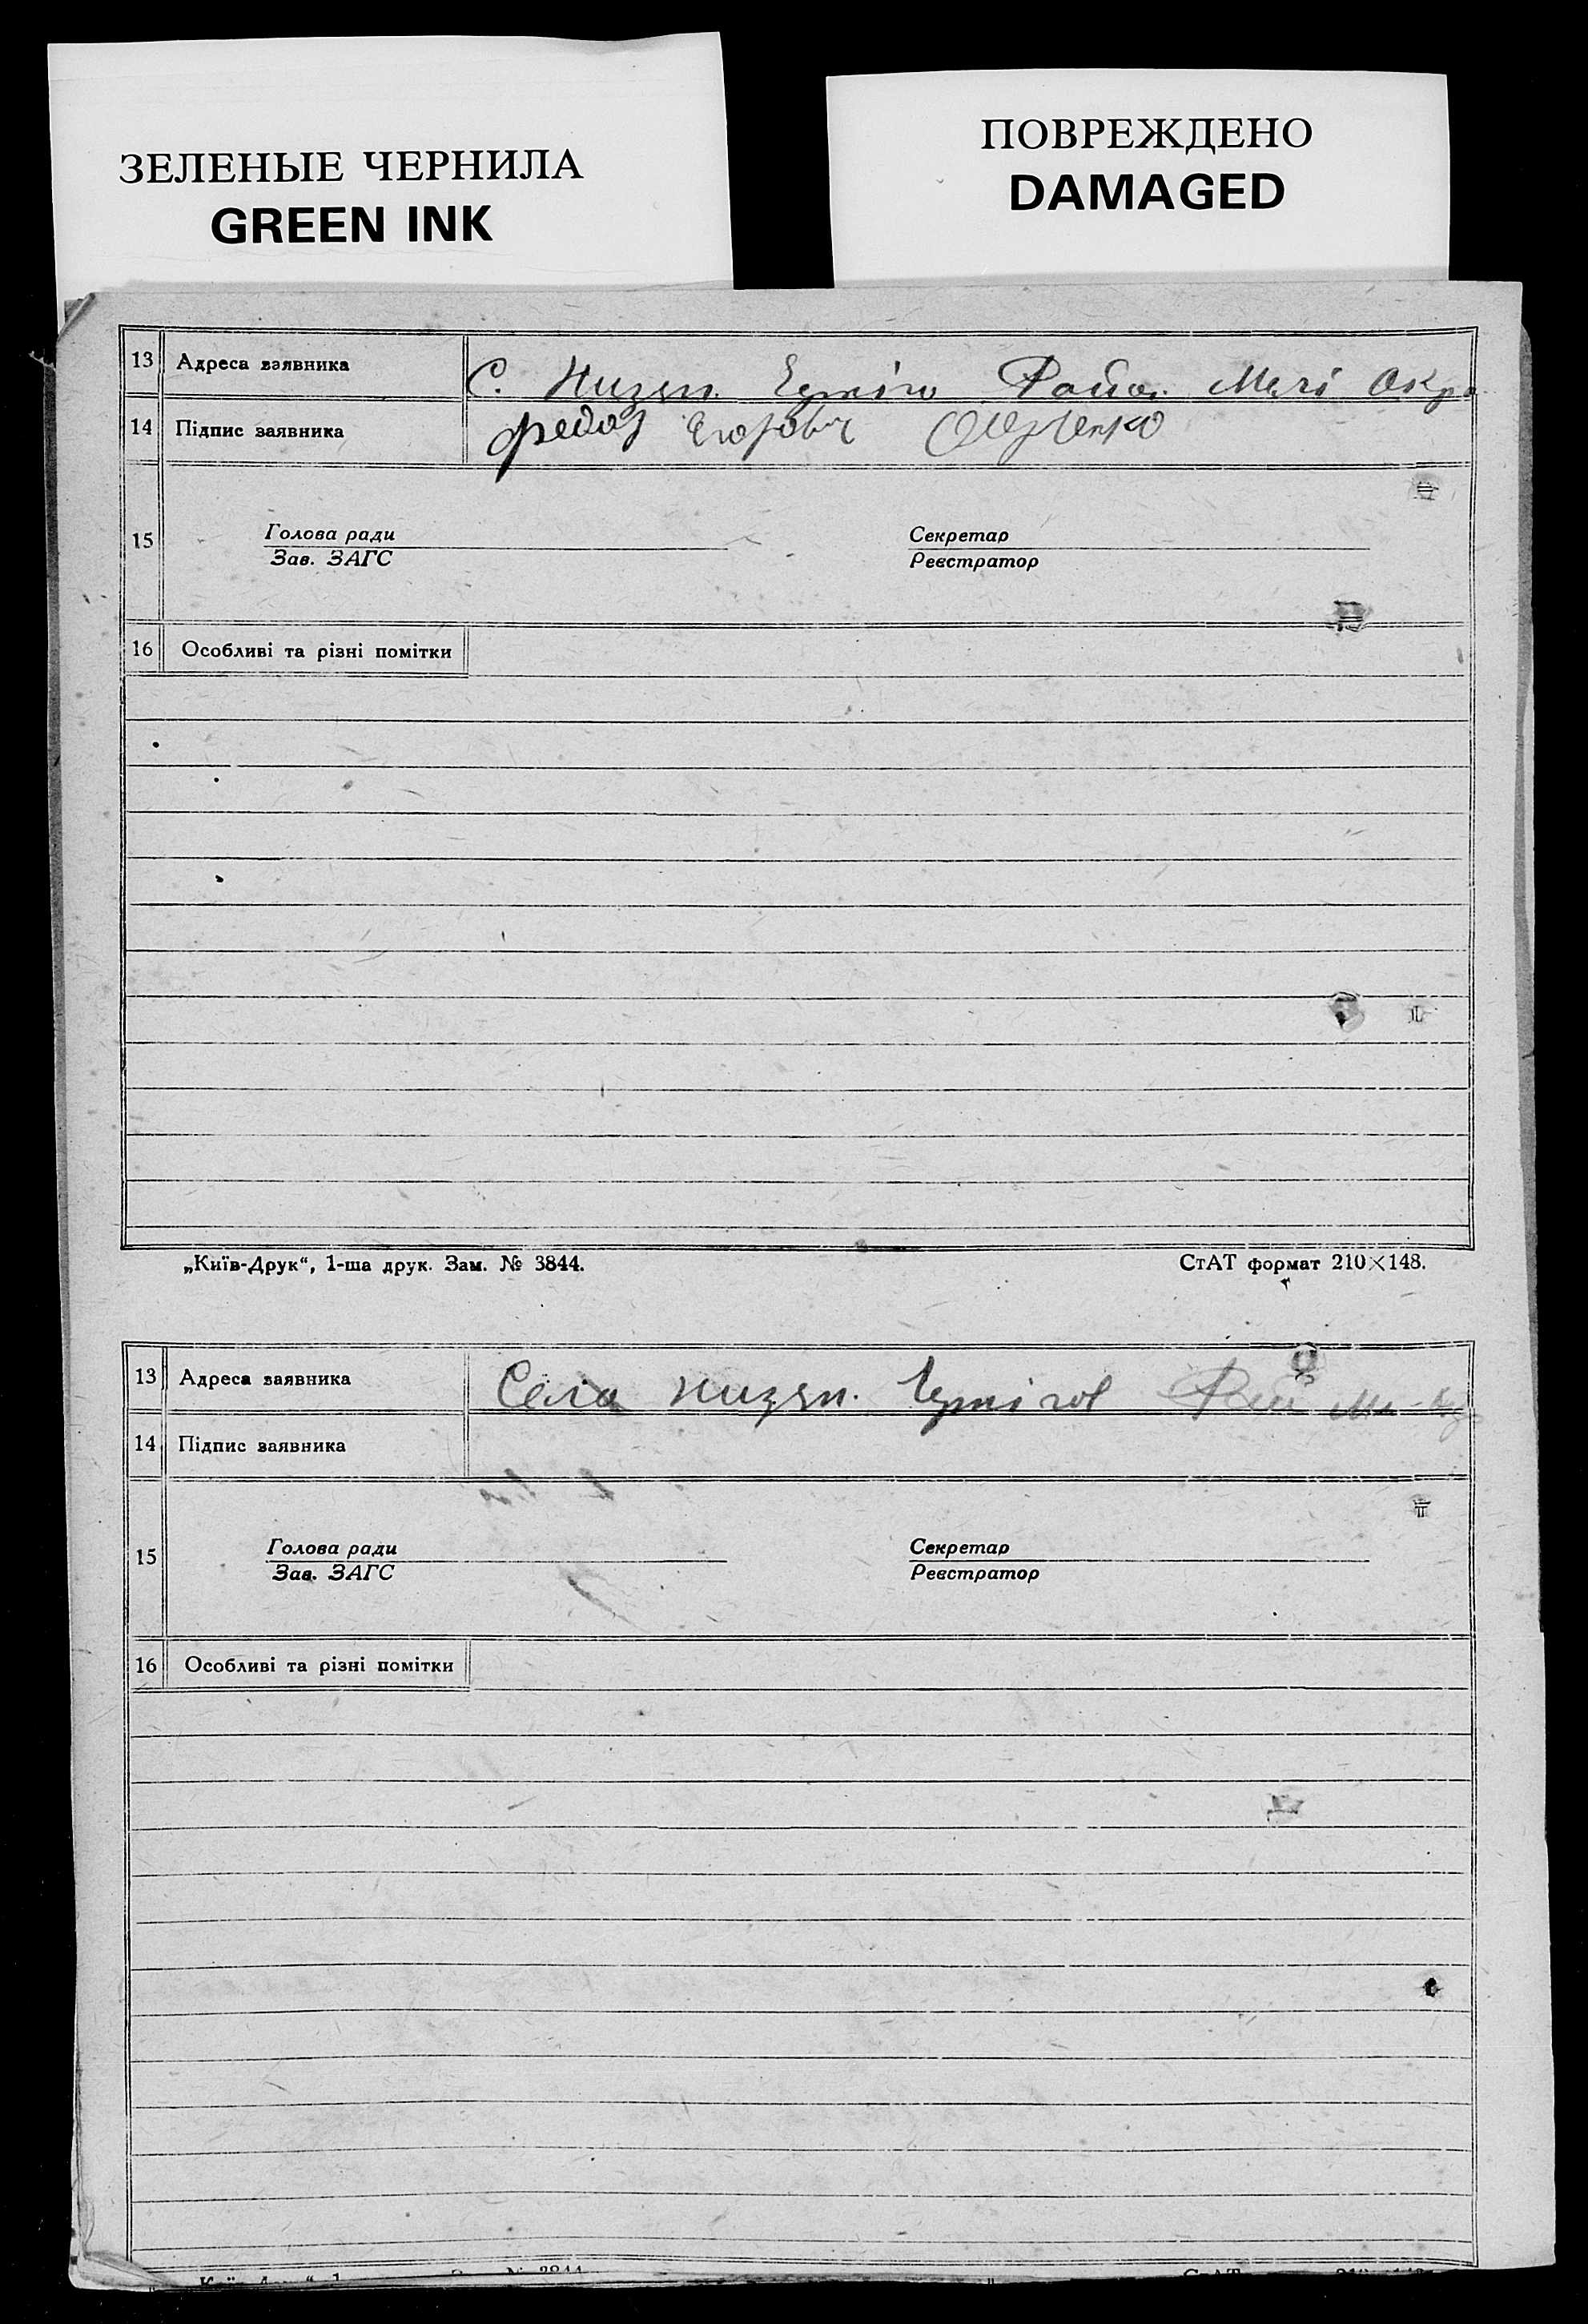 ЗЕЛЕНЫЕ ЧЕРНИЛА
GREEN INK
ПОВРЕЖДЕНО
DAMAGED
13 Адреса заявника С. Райо. Окр
14 Підпис заявника Федор Егорович
15 Голова ради Секретар
Зав. ЗАГС Реєстратор
16 Особливі та різні помітки
„Київ-Друк“, 1-ша друк. Зам. № 3844. СтАТ формат 210×148.
13 Адреса заявника Села Рай
14 Підпис заявника
15 Голова ради Секретар
Зав. ЗАГС Реєстратор
16 Особливі та різні помітки